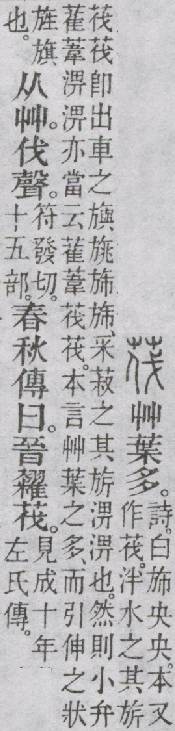 茷 艸葉多。詩。白斾央央。本又
作茷。泮水之其旂
茷茷卽出車之旟旐斾斾、采菽之其旂淠淠也。然則小弁
萑葦淠淠亦當云萑葦茷茷。本言艸葉之多、而引伸之狀
旌旗
也。从艸。伐聲。符發切。
十五部。春秋傳曰。晉糴茷。見成十年
左氏傳。